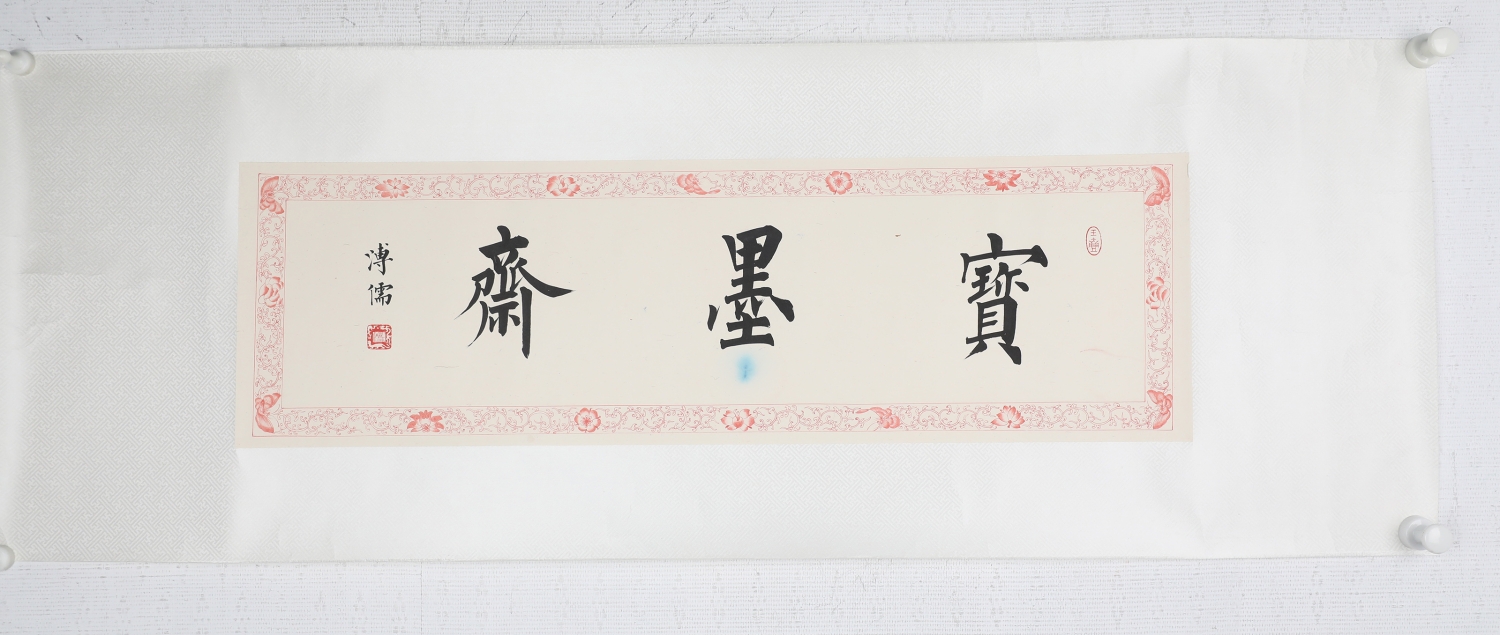 寶墨齋
溥儒